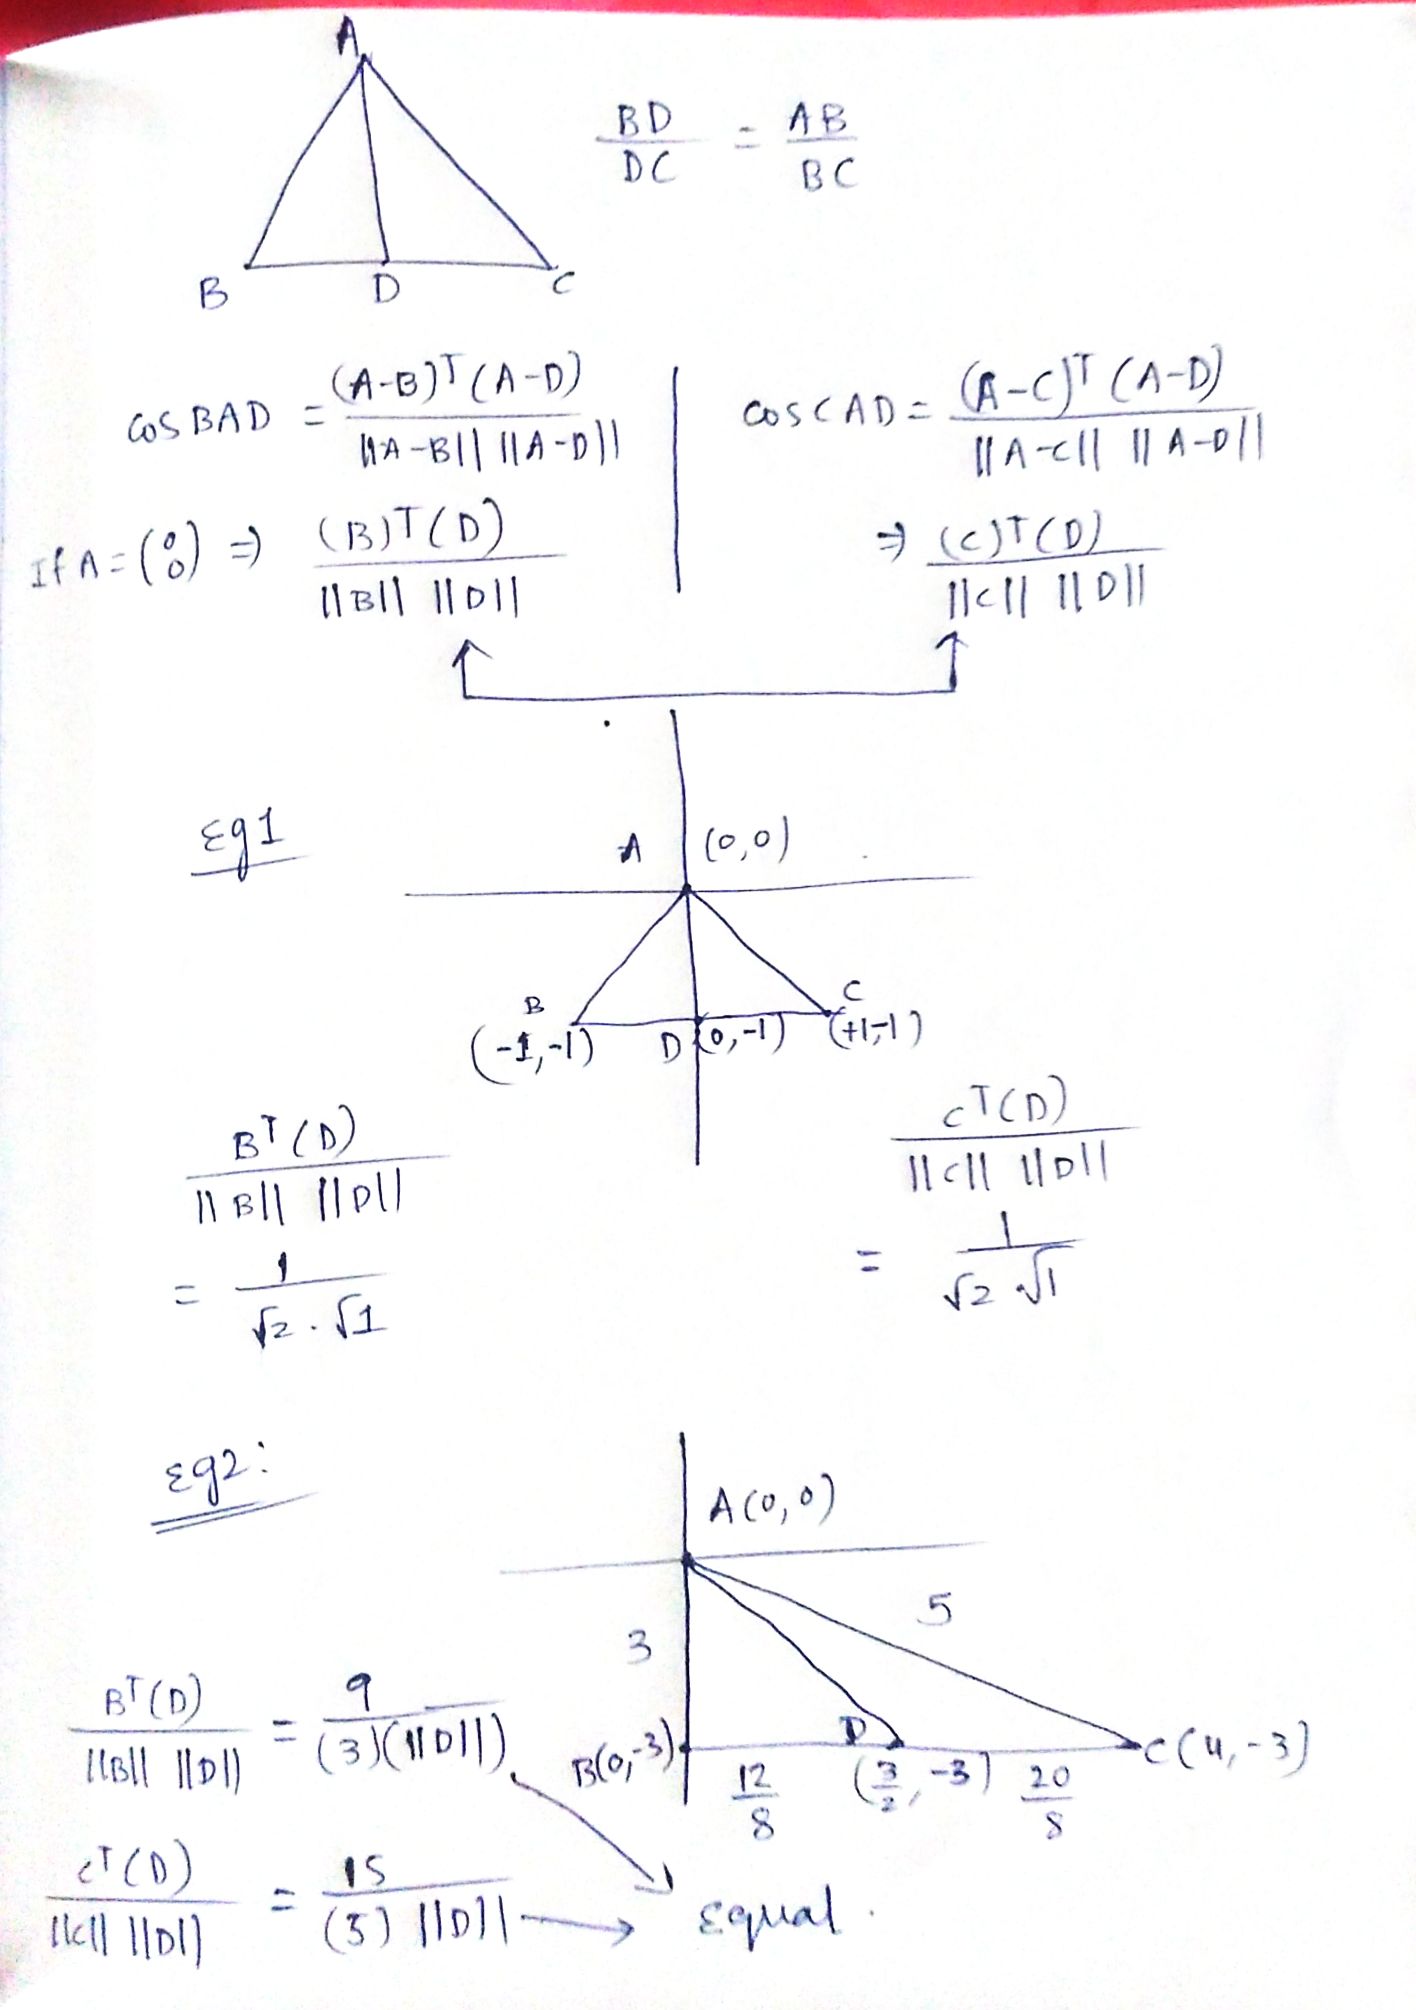 A
BD/DC = AB/BC
B D C
cos BAD = (A-B)ᵀ(A-D) / ||A-B|| ||A-D||
cos CAD = (A-C)ᵀ(A-D) / ||A-C|| ||A-D||
If A = (0 0) ⇒ (B)ᵀ(D) / ||B|| ||D||
⇒ (C)ᵀ(D) / ||C|| ||D||
Eg1
A (0,0)
B C
(-1,-1) D (0,-1) (+1,-1)
Bᵀ(D) / ||B|| ||D||
= 1 / √2 . √1
Cᵀ(D) / ||C|| ||D||
= 1 / √2 √1
Eg2:
A(0,0)
3 5
B(0,-3) D C(4,-3)
12/8 (3/2, -3) 20/8
Bᵀ(D) / ||B|| ||D|| = 9 / (3)(||D||)
Cᵀ(D) / ||C|| ||D|| = 15 / (5) ||D||
Equal.